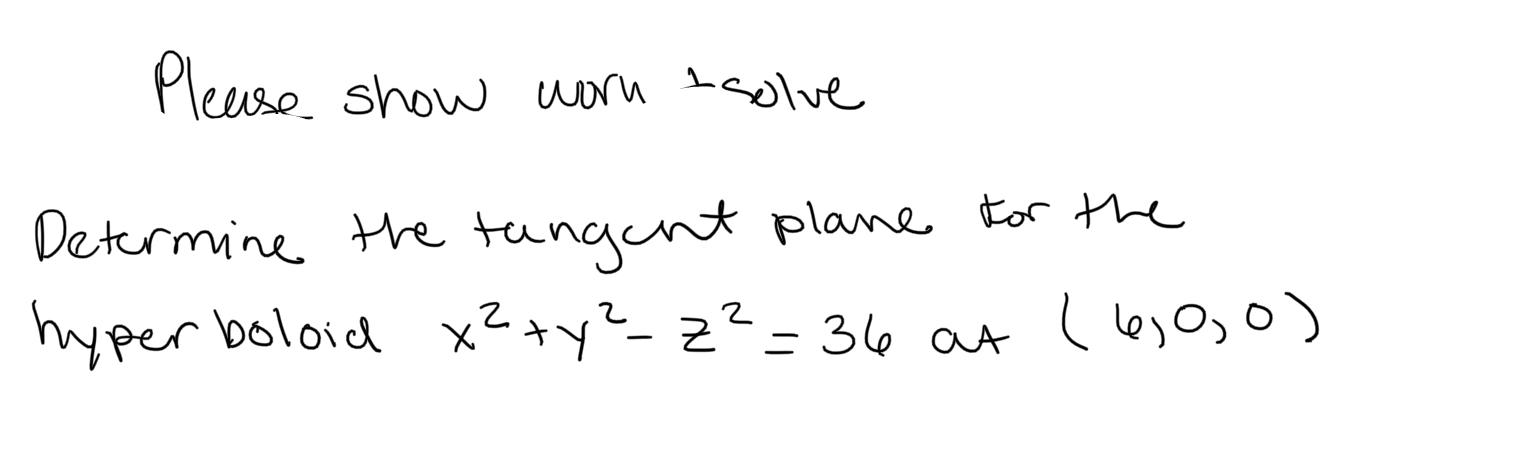 Please show work + solve
Determine the tangent plane for the
hyperboloid x² + y² - z² = 36 at (6,0,0)